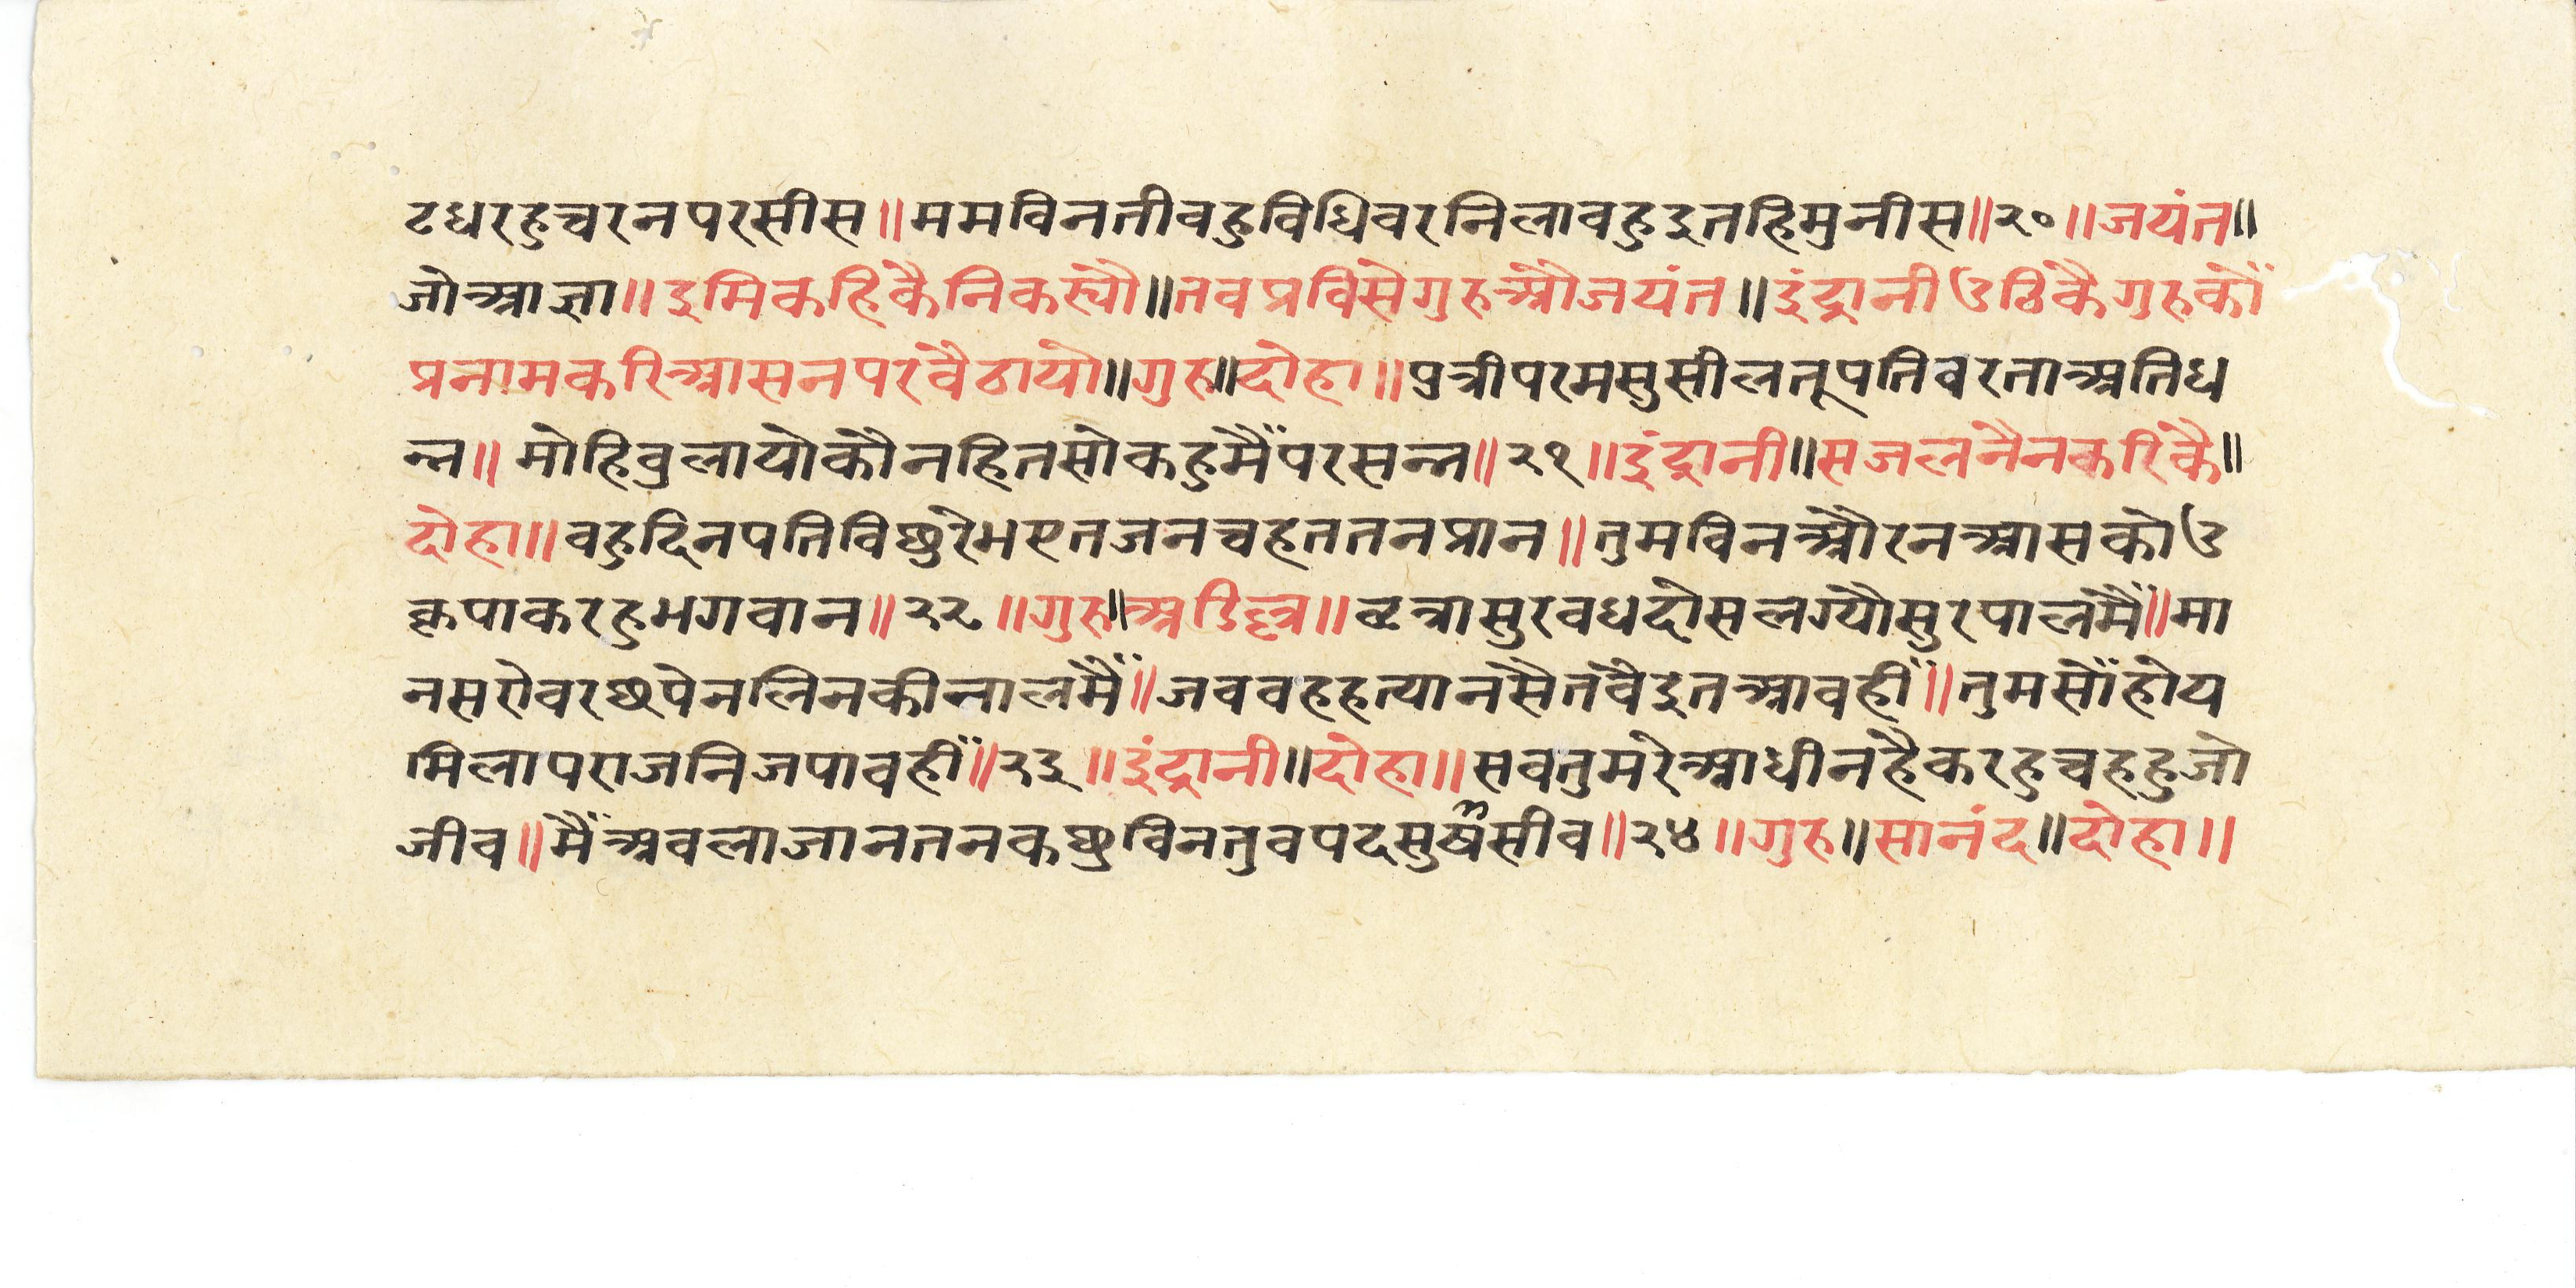 टधरहुचरनपरसीस॥ममविनतीवहुविधिवरनिलावहुइतहिमुनीस॥२०॥जयंत॥
जोआज्ञा॥इमिकहिकैनिकस्यौ॥तवप्रविसेगुरुऔजयंत॥इंद्रानीउठिकैगुरुकौं
प्रनामकरिआसनपरवैठायो॥गुरु॥दोहा॥पुत्रीपरमसुसीलतूपतिवरताअतिध
न्न॥मोहिवुलायोकौनहितसोकहुमैंपरसन्न॥२१॥इंद्रानी॥सजलनैनकरिकै॥
दोहा॥वहुदिनपतिविछुरेभएतजनचहततनप्रान॥तुमविनऔरनआसकोउ
कृपाकरहुभगवान॥२२॥गुरु॥अडिल्ल॥वृत्रासुरवधदोसलग्यौसुरपालमैं॥मा
नसरोवरछपेनलिनकीनालमैं॥जववहहत्यानसैतवैइतआवहीं॥तुमसोंहोय
मिलापराजनिजपावहीं॥२३॥इंद्रानी॥दोहा॥सवतुमरेआधीनहैकरहुचहहुजो
जीव॥मैंअवलाजानतनकछुविनतुवपदसुर्षसीव॥२४॥गुरु॥सानंद॥दोहा॥